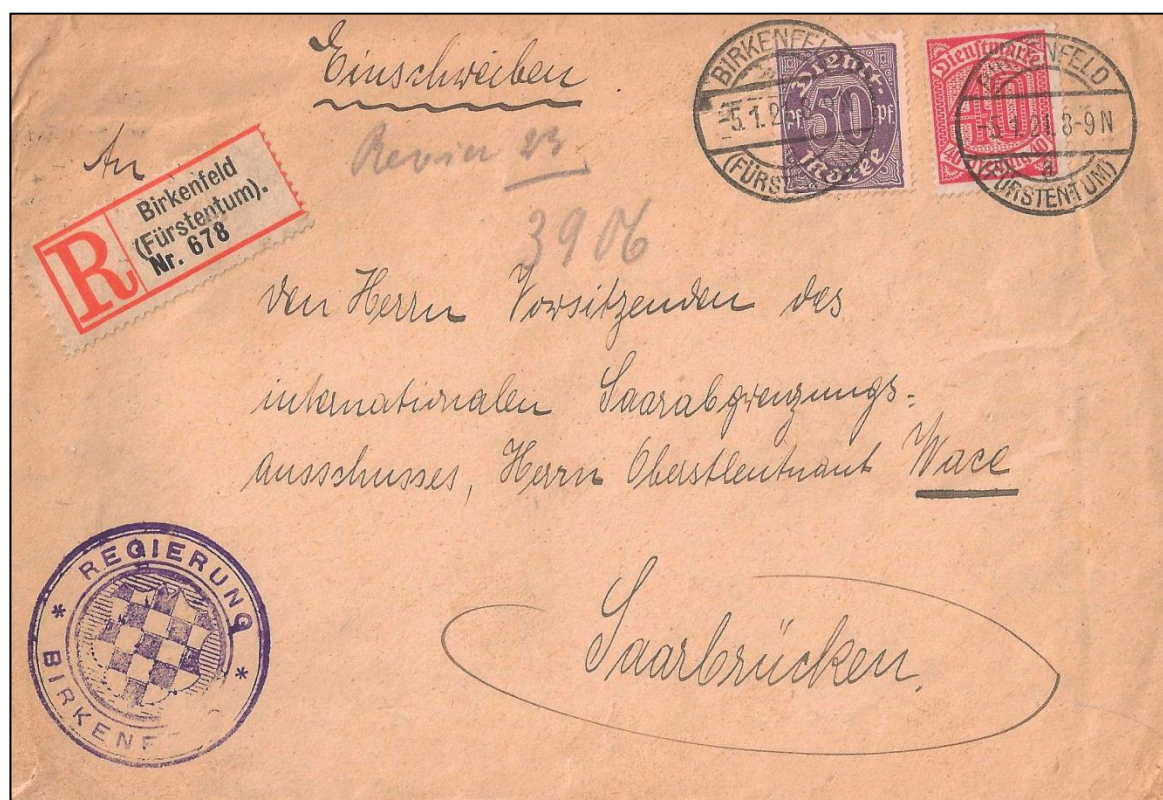 Einschreiben.
BIRKENFELD
-5.1.2 8-9 N
(FÜRST
Dienst-
Pf. 50 Pf.
marke
Dienstmarke
40
ENFELD
-5.1.21. 8-9 N
a
(FÜRSTENTUM)
An
Revier 23
R
Birkenfeld
(Fürstentum).
Nr. 678
3906
den Herrn Vorsitzenden des
internationalen Saarabgrenzungs-
ausschusses, Herrn Oberstleutnant Wace
Saarbrücken.
* REGIERUNG *
BIRKENF